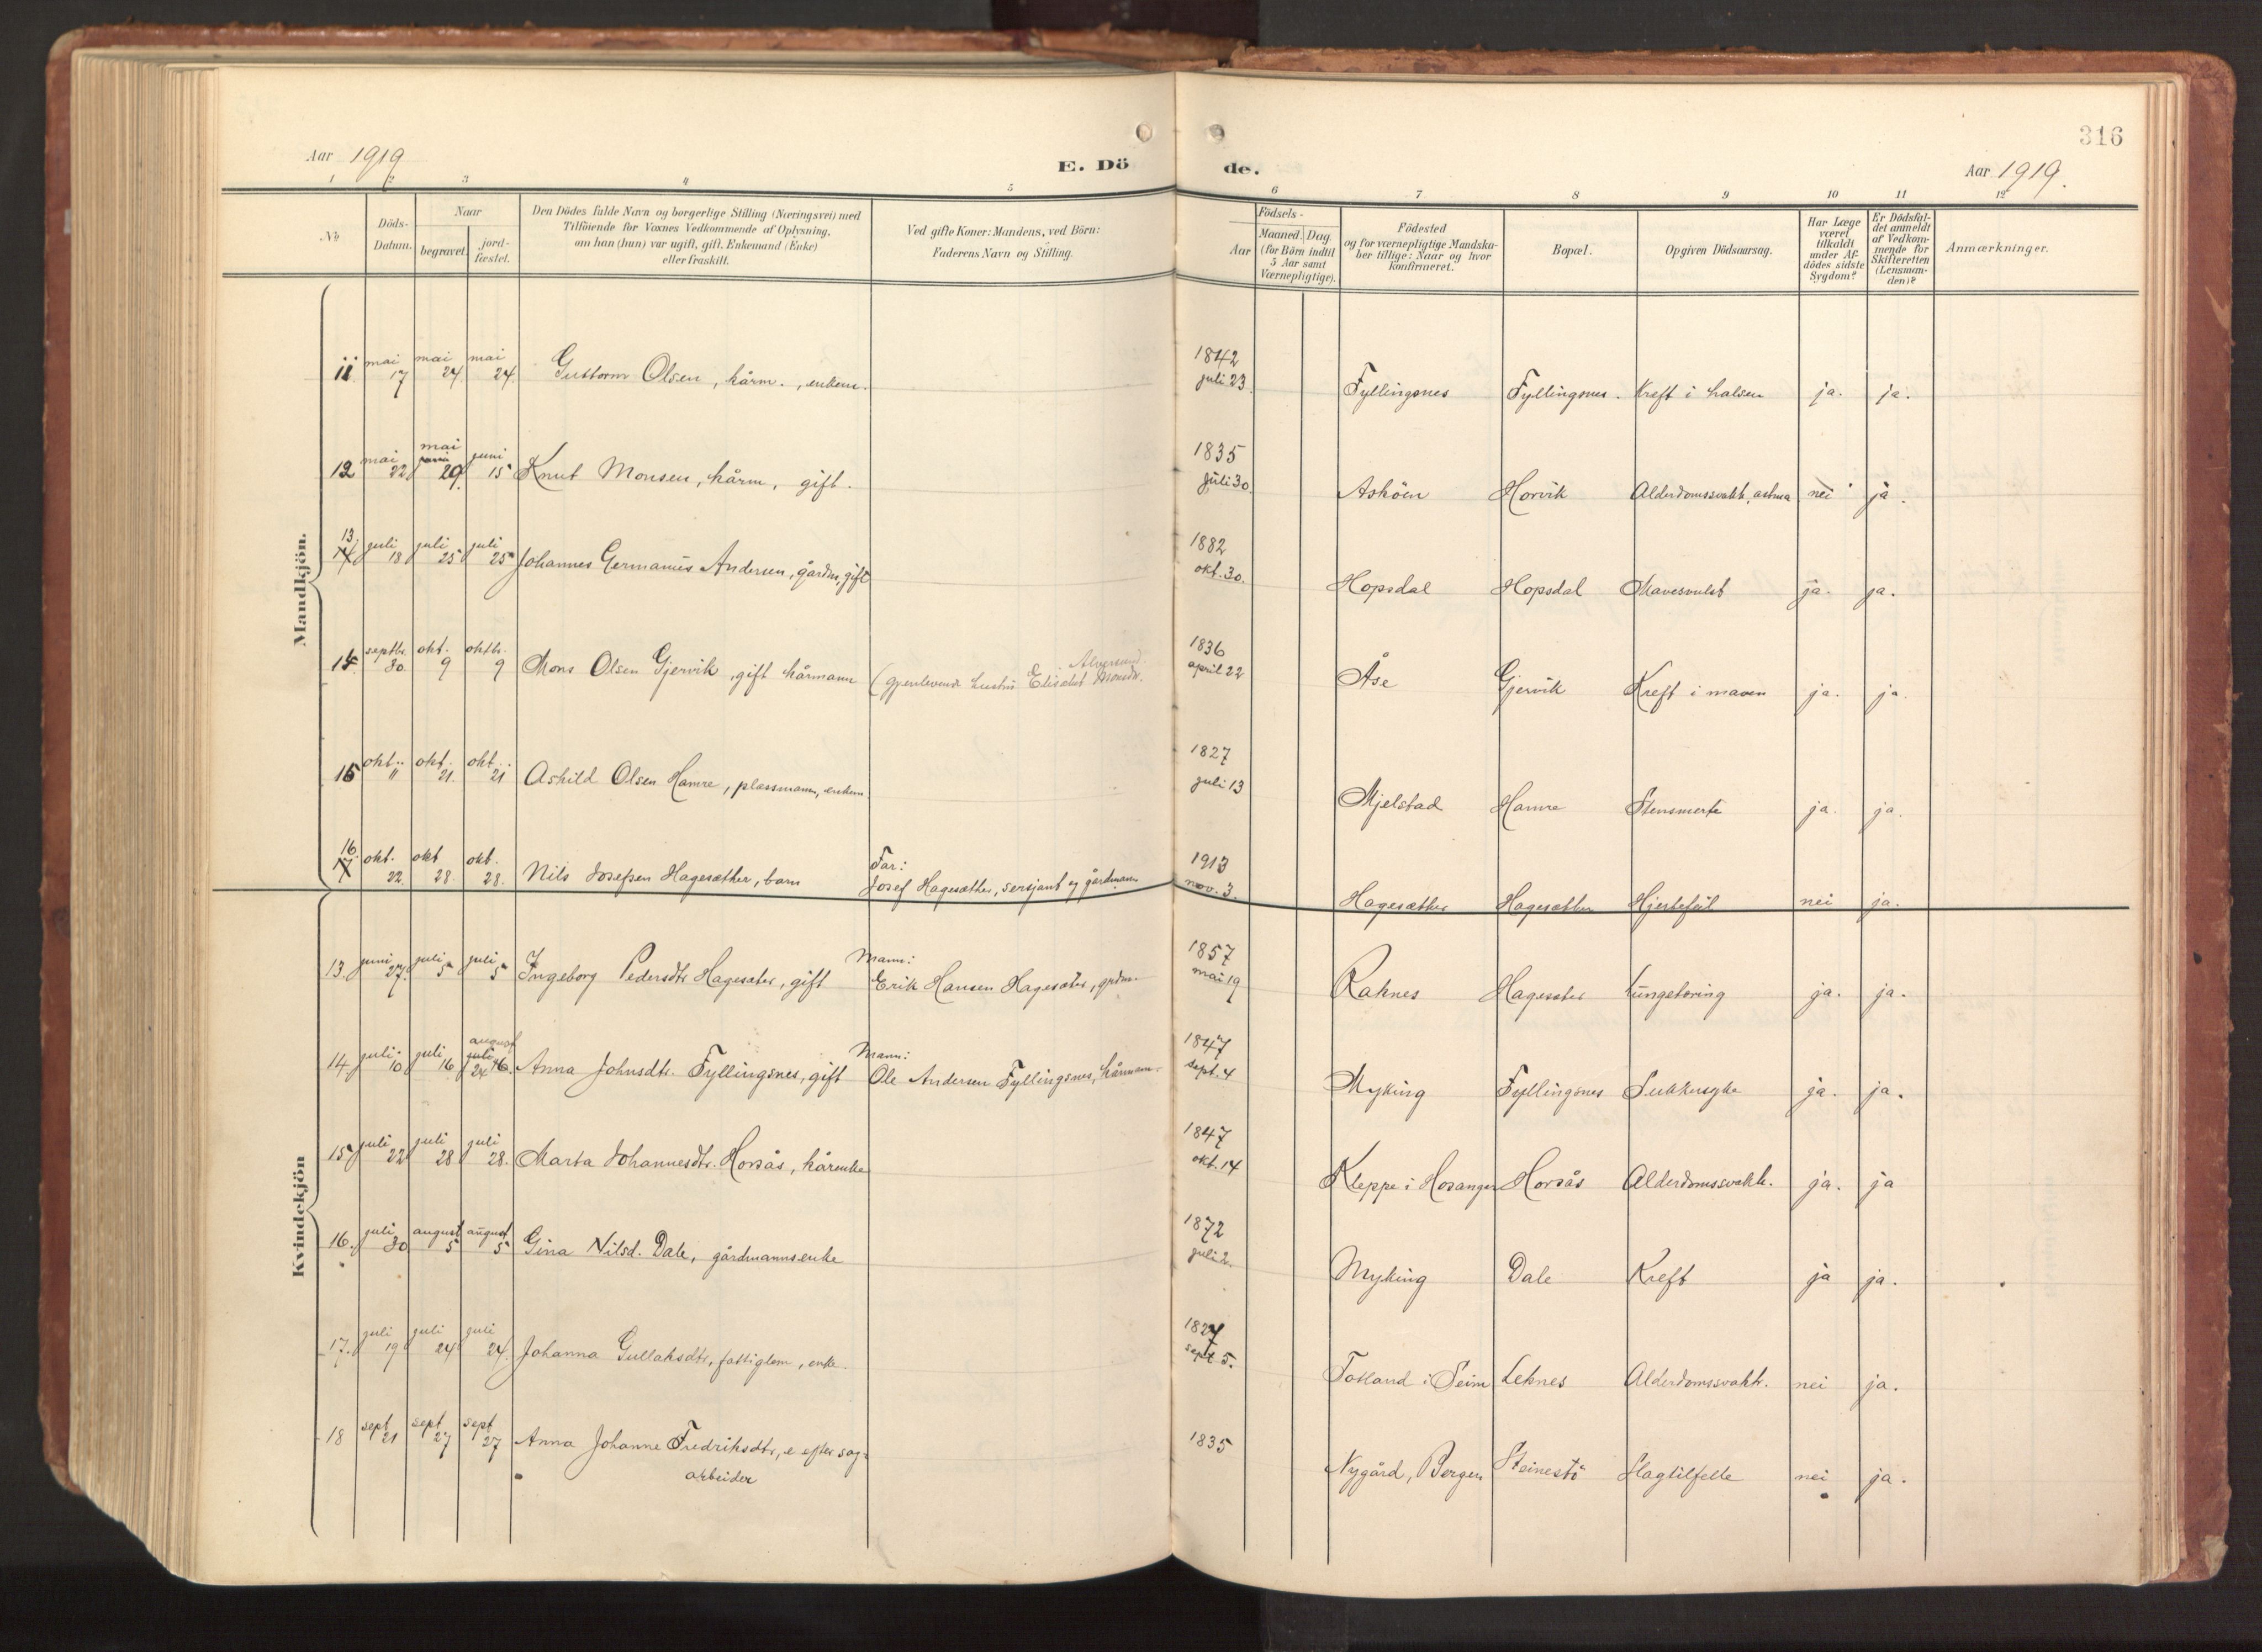 316
Aar 1919
E. Dö
de.
Aar 1919.
1 2 3 4 5 6 7 8 9 10 11 12
No
Döds-Datum.
Naar
begravet.
jord-fæstet.
Den Dödes fulde Navn og borgerlige Stilling (Næringsvei) med
Tilföiende for Voxnes Vedkommende af Oplysning,
om han (hun) var ugift, gift, Enkemand (Enke)
eller fraskilt.
Ved gifte Koner: Mandens, ved Börn:
Faderens Navn og Stilling.
Födsels-
Aar
Maaned. Dag
(for Börn indtil
5 Aar samt
Værnepligtige).
Födested
og for værnepligtige Mandska-
ber tillige: Naar og hvor
konfirmeret.
Bopæl.
Opgiven Dödsaarsag.
Har Læge
været
tilkaldt
under Af-
dödes sidste
Sygdom?
Er Dödsfal-
det anmeldt
af Vedkom-
mende for
Skifteretten
(Lensman-
den)?
Anmærkninger.
Mandkjön.
11 mai 17 mai 24 mai 24. Guttorm Olsen, kårm., enkem. 1842 juli 23. Fyllingsnes Fyllingsnes. Kreft i halsen ja. ja.
12 mai 22 mai 29. juni 15 Knut Monsen, kårm, gift. 1835 juli 30. Asköen Horvik Alderdomssvakh, astma nei ja.
13. juli 18 juli 25 juli 25 Johannes Germanius Andersen, gårdm, gift 1882 okt. 30. Hopsdal Hopsdal Mavesvulst ja. ja.
14. septbr. 30. okt. 9 oktbr. 9 Mons Olsen Gjervik, gift kårmann (gjenlevende hustru Elisabet Monsdr. Alversund. 1836 april 22 Åse Gjervik Kreft i maven ja. ja.
15 okt. 11 okt. 21. okt. 21 Askild Olsen Hamre, plassmann, enkem. 1827 juli 13 Mjelstad Hamre Stensmerte ja. ja.
16. okt. 22. okt 28. okt. 28. Nils Josefsen Hagesæther, barn Far: Josef Hagesæther, sersjant og gårdmann 1913 nov. 3. Hagesæther Hagesæther Hjertefeil nei ja.
Kvindekjön
13. juni 27. juli 5 juli 5 Ingeborg Pedersdtr Hagesæter, gift Mann: Erik Hansen Hagesæter, grdm. 1857 mai 19 Raknes Hagesæter Lungetæring ja. ja.
14. juli 10 juli 16 august juli 24 16. Anna Johnsdtr. Fyllingsnes, gift Mann: Ole Andersen Fyllingsnes, kårmann. 1847 sept. 4 Myking Fyllingsnes Sukkersyke ja. ja.
15 juli 22 juli 28 juli 28. Marta Johannesdtr. Horsås, kårenke 1847 okt. 14 Kleppe i Hosanger Horsås Alderdomssvakh. ja. ja
16. juli 30 august 5 august 5 Gina Nilsd. Dale, gårdmannsenke 1872 juli 2. Myking Dale Kreft ja ja.
17. juli 19 juli 24 juli 24. Johanna Gullaksdtr, fattiglem, enke. 1827 sept 5. Totland i Seim Leknes Alderdomssvakh. nei ja.
18 sept 21 sept 27 sept 27 Anna Johanne Fredriksdtr, e efter sag-
arbeider 1835 Nygård, Bergen Steinestö Slagtilfelle nei ja.